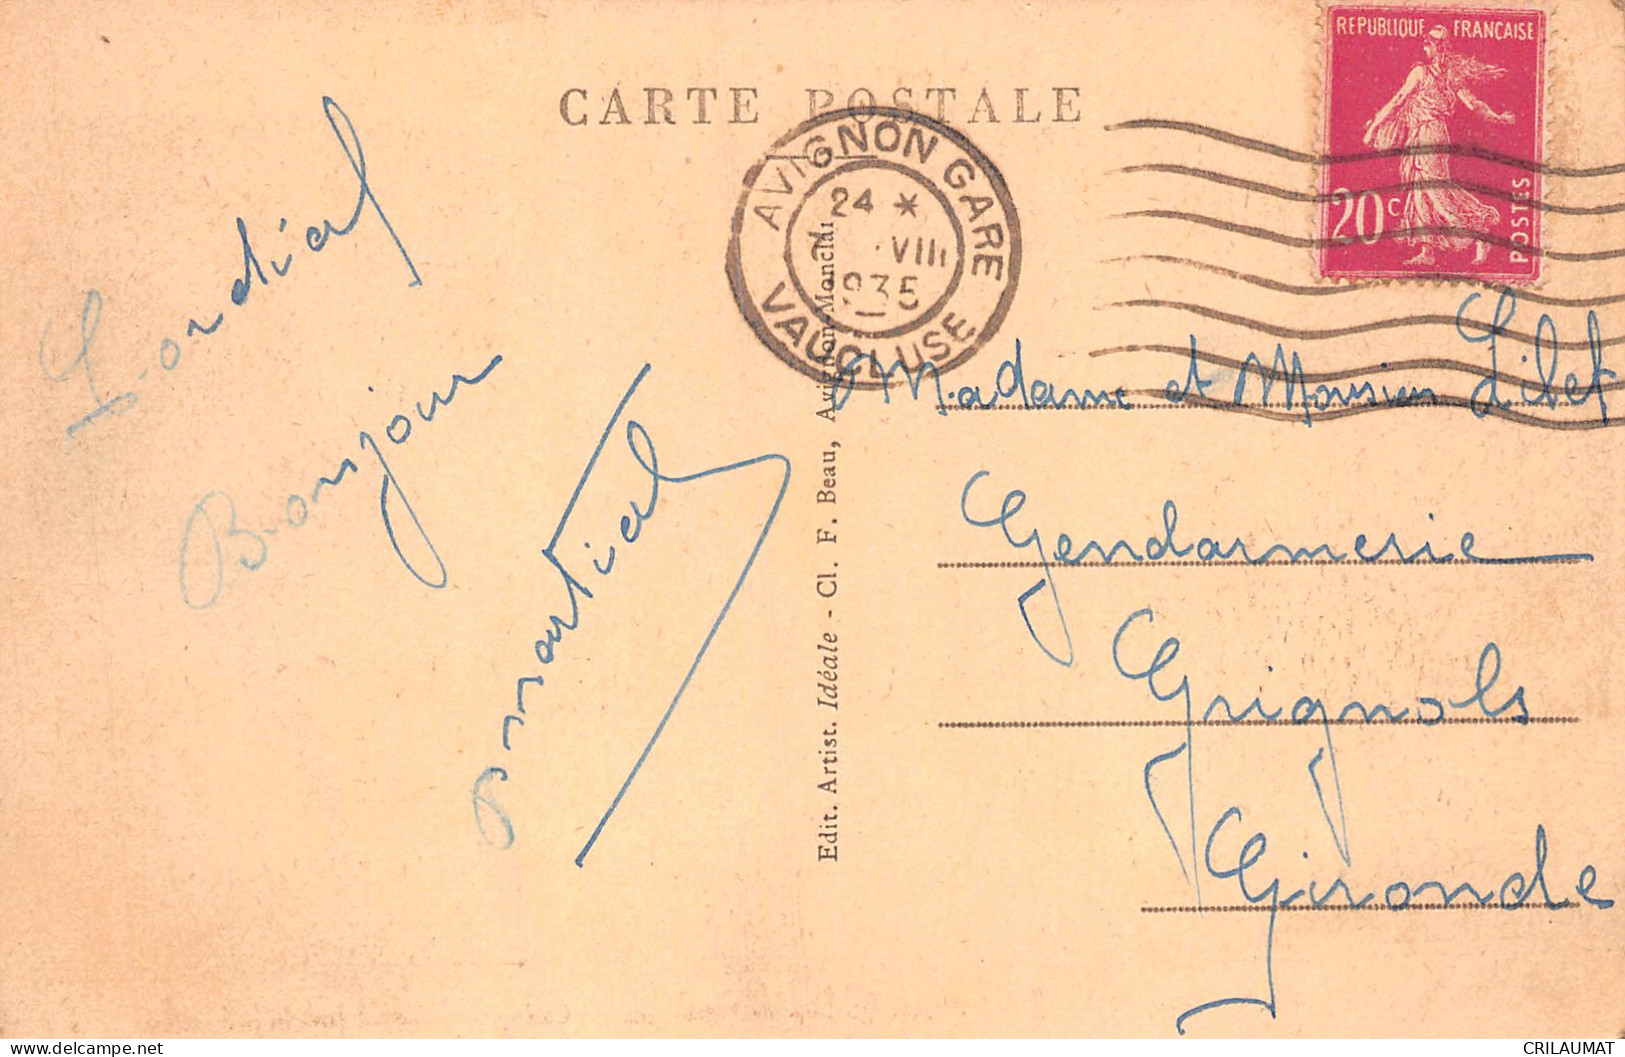 CARTE POSTALE
REPUBLIQUE FRANÇAISE
20c
POSTES
AVIGNON GARE
24 *
VIII
1935
VAUCLUSE
Cordial
Bonjour
Martial
Edit. Artist. Idéale - Cl. F. Beau, Avignon-Monclar
Madame et Monsieur
Gendarmerie
Grignols
Gironde
CRILAUMAT